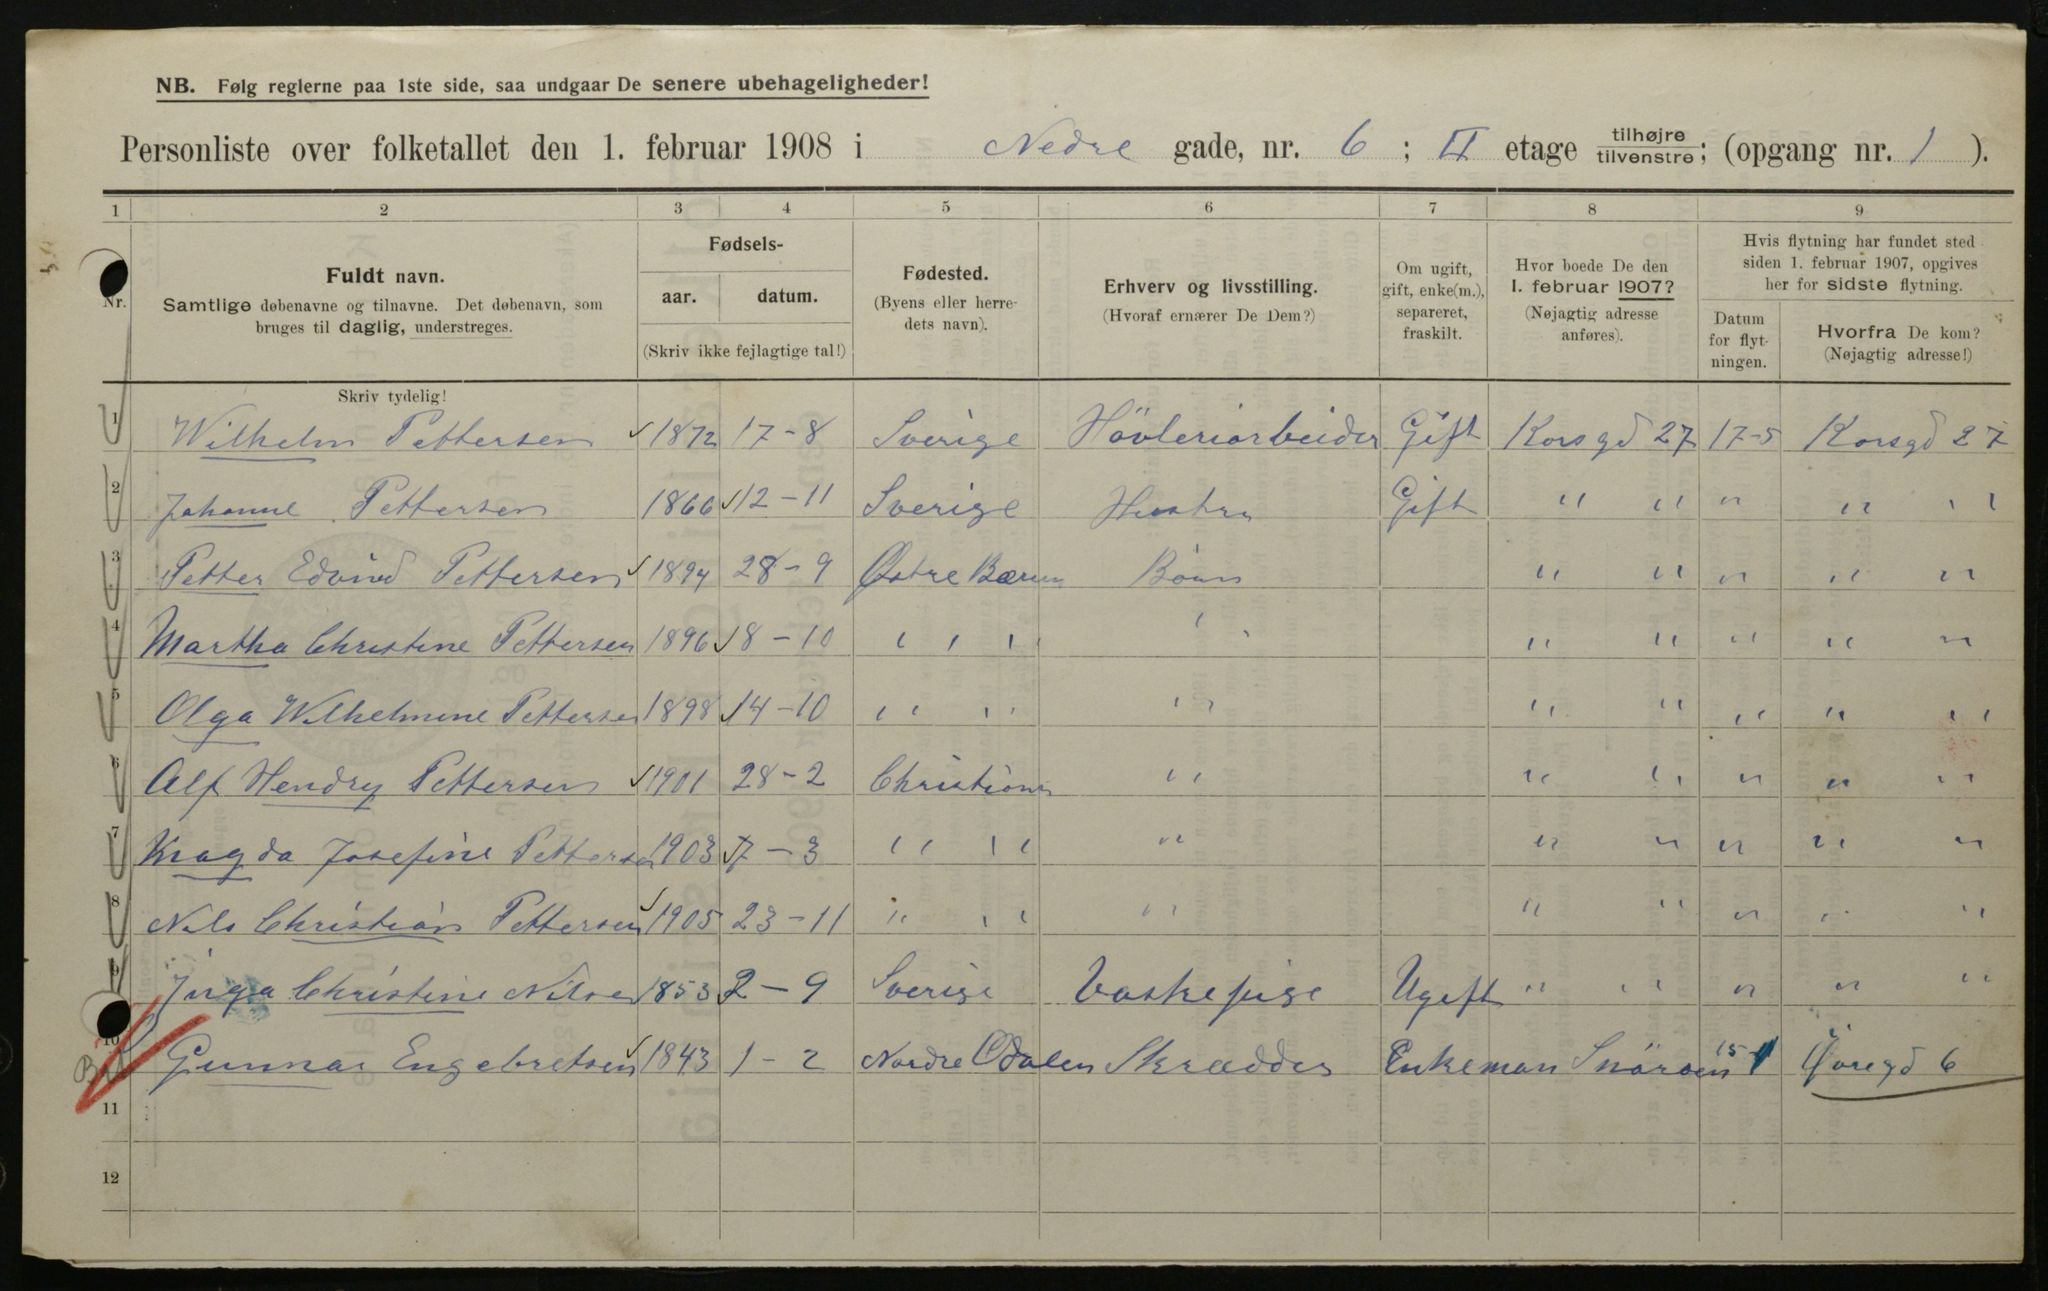 NB. Følg reglerne paa 1ste side, saa undgaar De senere ubehageligheder!
Personliste over folketallet den 1. februar 1908 i Nedre gade, nr. 6 ; II etage tilhøjre tilvenstre; (opgang nr. 1 ).
1 2 3 4 5 6 7 8 9
Nr. Fuldt navn. Samtlige døbenavne og tilnavne. Det døbenavn, som bruges til daglig, understreges.
Fødsels- aar. datum. (Skriv ikke fejlagtige tal!)
Fødested. (Byens eller herredets navn).
Erhverv og livsstilling. (Hvoraf ernærer De Dem?)
Om ugift, gift, enke(m.), separeret, fraskilt.
Hvor boede De den 1. februar 1907? (Nøjagtig adresse anføres).
Hvis flytning har fundet sted siden 1. februar 1907, opgives her for sidste flytning.
Datum for flytningen. Hvorfra De kom? (Nøjagtig adresse!)
Skriv tydelig!
1 Wilhelm Pettersen 1872 17-8 Sverige Hövleriarbeider Gift Korsgd 27 17-5 Korsgd 27
2 Johanne Pettersen 1866 12-11 Sverige Hustru Gift " " " " "
3 Petter Edvind Pettersen 1894 28-9 Østre Bærum Börn " " " " "
4 Martha Christine Pettersen 1896 18-10 " " " " " " " " "
5 Olga Wilhelmine Pettersen 1898 14-10 " " " " " " " "
6 Alf Hendry Pettersen 1901 28-2 Christiania " " " " " "
7 Magda Josefine Pettersen 1903 7-3 " " " " " " " "
8 Nils Christian Pettersen 1905 23-11 " " " " " " " "
9 Inga Christine Nilsen 1853 2-9 Sverige Vaskepige Ugift " " " " "
10 Gunnar Engebretsen 1843 1-2 Nordre Odalen Skrædder Enkeman Snöroen 15-1 Øvregd 6
11
12